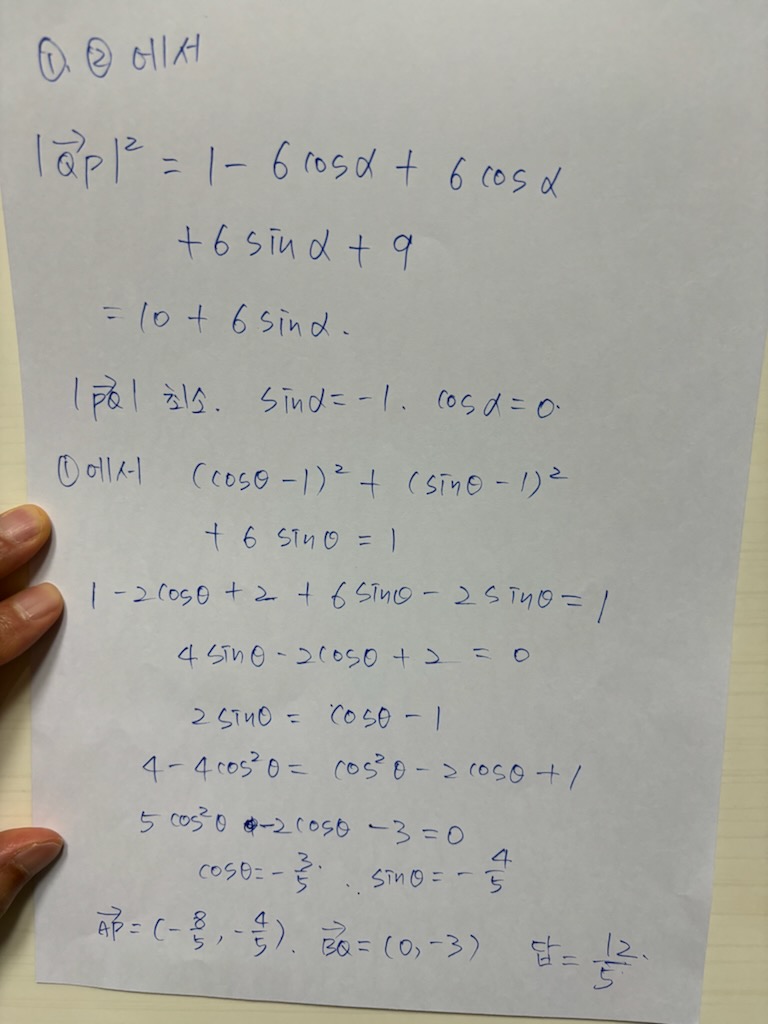 ①, ② 에서
|QP|² = 1 - 6 cosα + 6 cosα
+ 6 sinα + 9
= 10 + 6 sinα.
|PQ| 최소. sinα = -1. cosα = 0.
① 에서 (cosθ - 1)² + (sinθ - 1)²
+ 6 sinθ = 1
1 - 2cosθ + 2 + 6 sinθ - 2 sinθ = 1
4 sinθ - 2cosθ + 2 = 0
2 sinθ = cosθ - 1
4 - 4cos²θ = cos²θ - 2 cosθ + 1
5 cos²θ - 2 cosθ - 3 = 0
cosθ = - 3/5. ∴ sinθ = - 4/5
AP = (- 8/5, - 4/5). BQ = (0, -3) 답 = 12/5.